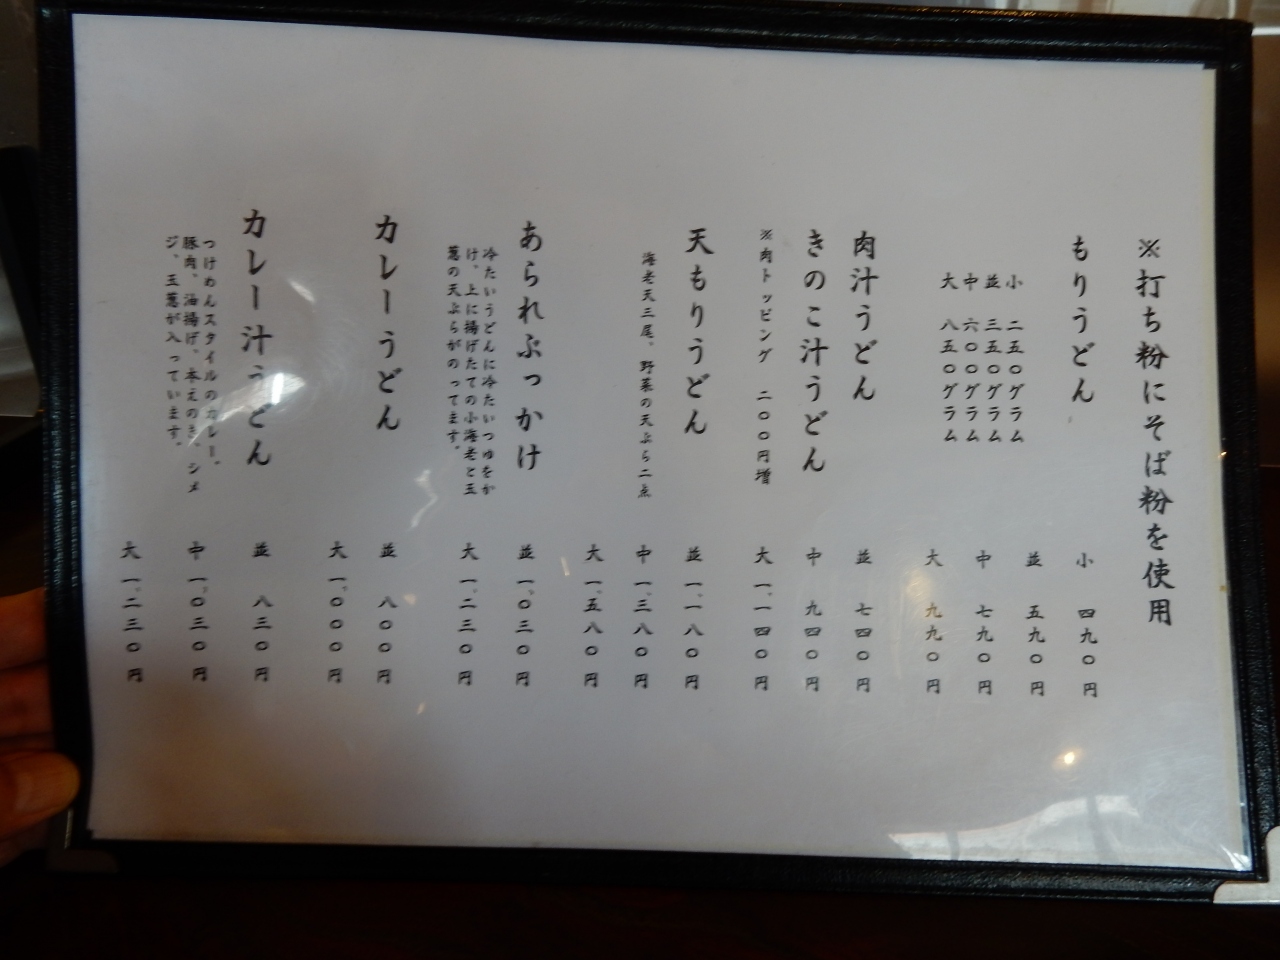 ※打ち粉にそば粉を使用
もりうどん
小 二五〇グラム
並 三五〇グラム
中 六〇〇グラム
大 八五〇グラム
小 四九〇円
並 五九〇円
中 七九〇円
大 九九〇円
肉汁うどん
きのこ汁うどん
※肉トッピング 二〇〇円増
並 七四〇円
中 九四〇円
大 一、一四〇円
天もりうどん
海老天三尾、野菜の天ぷら二点
並 一、一八〇円
中 一、三八〇円
大 一、五八〇円
あられぶっかけ
冷たいうどんに冷たいつゆをか
け、上に揚げたての小海老と玉
葱の天ぷらがのってます。
並 一、〇三〇円
大 一、二三〇円
カレーうどん
並 八〇〇円
大 一、〇〇〇円
カレー汁うどん
つけめんスタイルのカレー。
豚肉、油揚げ、本えのき、シメ
ジ、玉葱が入っています。
並 八三〇円
中 一、〇三〇円
大 一、二三〇円